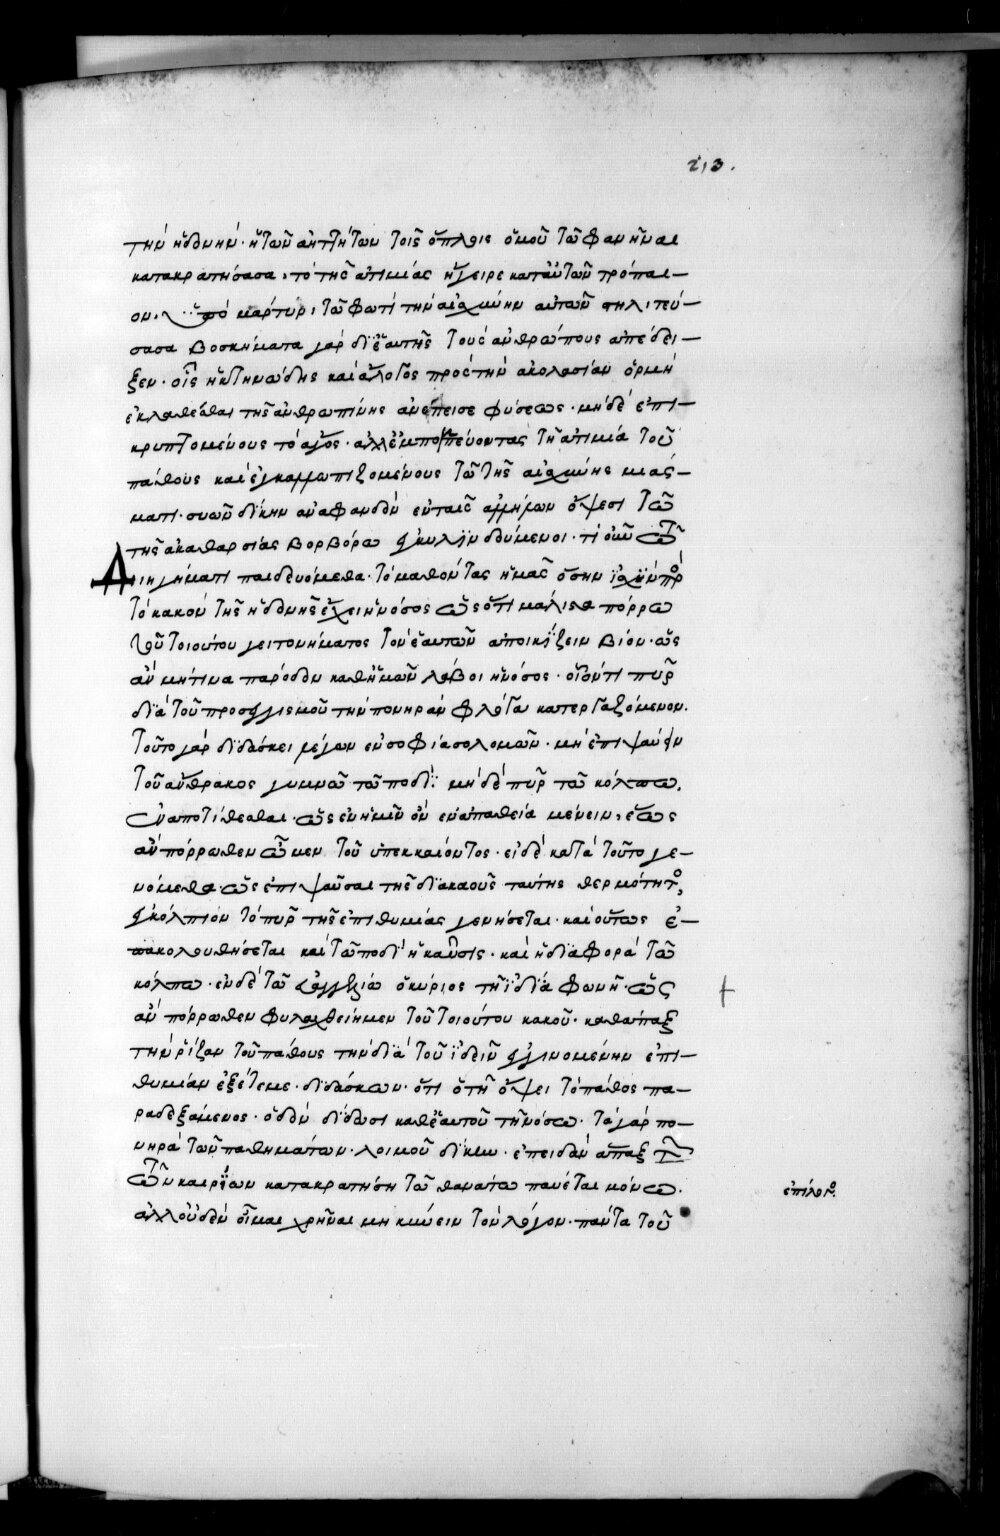 213.
τὴν ἡδονὴν· ἡ τῶν ἀηττήτων τοῖς ὅπλοις ὁμοῦ τῶ φανῆναι
κατακρατήσασα, τὸ τῆς ἀτιμίας ἤγειρε κατ' αὐτῶν τρόπαι-
ον, ὑπὸ μάρτυρι τῶ φωτὶ τὴν αἰσχύνην αὐτῶν στηλιτεύ-
σασα βοσκήματα γὰρ δι' ἑαυτῆς τοὺς ἀνθρώπους ἀπέδει-
ξεν· οἷς ἡ κτηνώδης καὶ ἄλογος πρὸς τὴν ἀκολασίαν ὁρμὴ
ἐκλαθέσθαι τῆς ἀνθρωπίνης ἀνέπεισε φύσεως· μηδὲ ἐπι-
κρυπτομένους τὸ ἄγος· ἀλλ' ἐμπομπεύοντας τῆ ἀτιμία τοῦ
πάθους καὶ ἐγκαλλωπιζομένους τῶ τῆς αἰσχύνης μιάσ-
ματι· συῶν δίκην ἀναφανδὸν ἐν ταῖς ἀλλήλων ὄψεσι τῶ
τῆς ἀκαθαρσίας βορβόρω ἐγκυλινδούμενοι· τί οὖν τῶ
Διηγήματι παιδευόμεθα· τὸ μαθόντας ἡμᾶς ὅσην ἰσχὺν πρὸς
τὸ κακὸν τῆς ἡδονῆς ἔχει ἡ νόσος ὡς ὅτι μάλιστα πόρρω
τοῦ τοιούτου γειτονήματος τὸν ἑαυτῶν ἀποικίζειν βίον· ὡς
ἂν μή τινα πάροδον καθ' ἡμῶν λάβοι ἡ νόσος· οἱονεὶ πῦρ
διὰ τοῦ προσεγγισμοῦ τὴν πονηρὰν φλόγα κατεργαζόμενον.
Τοῦτο γὰρ διδάσκει λέγων ἐν σοφία σολομῶν· μὴ ἐπιψαύειν
τοῦ ἄνθρακος γυμνῶ τῶ ποδί· μηδὲ πῦρ τῶ κόλπω.
ἐναποτίθεσθαι· ὡς ἐν ἡμῖν ὂν ἐν ἀπαθεία μένειν, ἕως
ἂν πόρρωθεν ὦμεν τοῦ ὑπεκκαίοντος· εἰ δὲ κατὰ τοῦτο γε-
νόμεθα· ὡς ἐπιψαῦσαι τῆς διακαοῦς ταύτης θερμότητος,
ἐγκόλπιον τὸ πῦρ τῆς ἐπιθυμίας γενήσεται· καὶ οὕτως ἐ-
πακολουθήσεται καὶ τῶ ποδὶ ἡ καῦσις· καὶ ἡ διαφορὰ τῶ
κόλπω· ἐν δὲ τῶ εὐαγγελίω ὁ κύριος τῆ ἰδία φωνῆ· ὡς
ἂν πόρρωθεν φυλαχθείημεν τοῦ τοιούτου κακοῦ· καθάπαξ
τὴν ῥίζαν τοῦ πάθους τὴν διὰ τοῦ ἰδεῖν ἐγγινομένην ἐπι-
θυμίαν ἐξέτεμε· διδάσκων· ὅτι ὁ τῆ ὄψει τὸ πάθος πα-
ραδεξάμενος· ὁδὸν δίδωσι καθ' ἑαυτοῦ τῆ νόσω· τὰ γὰρ πο-
νηρὰ τῶν παθημάτων· λοιμοῦ δίκην· ἐπειδὰν ἅπαξ
τῶν καιρίων κατακρατήση τῶ θανάτω παύεται μόνω.
ἀλλ' οὐδὲν οἶμαι χρῆναι μηκύνειν τὸν λόγον· πάντα τοῦ
ἐπίλογος